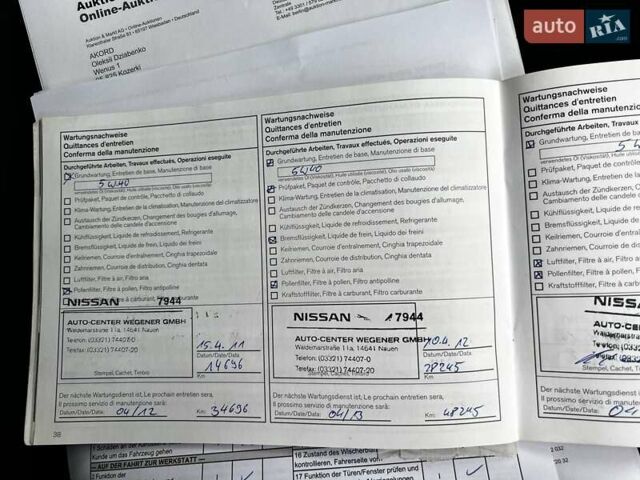 Auktion & Markt AG • Online-Auktionen
AKORD
Oleksii Dziabenko
Wenus 1
05-825 Kozerki
auto RIA.com
Wartungsnachweise
Quittances d'entretien
Conferma della manutenzione
Durchgeführte Arbeiten, Travaux effectués, Operazioni eseguite
Grundwartung, Entretien de base, Manutenzione di base
5W40
verwendetes Öl (Viskosität), Huile utilisée (viscosité), Olio usato (viscosità)
Prüfpaket, Paquet de contrôle, Pacchetto di collaudo
Klima-Wartung, Entretien de la climatisation, Manutenzione del climatizzatore
Austausch der Zündkerzen, Changement des bougies d'allumage,
Cambiamento delle candele d'accensione
Kühlflüssigkeit, Liquide de refroidissement, Refrigerante
Bremsflüssigkeit, Liquide de frein, Liquido dei freini
Keilriemen, Courroie d'entraînement, Cinghia trapezoidale
Zahnriemen, Courroie de distribution, Cinghia dentata
Luftfilter, Filtre à air, Filtro aria
Pollenfilter, Filtre à pollen, Filtro antipolline
Filtre à carburant, Filtro carburante
NISSAN 7944
AUTO-CENTER WEGENER GMBH
Waldemarstrasse 11a, 14641 Nauen
Telefon: (03321) 74407-0
Telefax: (03321) 74407-20
Stempel, Cachet, Timbro
15.4.11
Datum/Date/Data:
14696
Km:
Der nächste Wartungsdienst ist, Le prochain entretien sera,
Il prossimo servizio di manutenzione sarà:
Datum/Date/Data: 04/12 Km: 34696
38
Wartungsnachweise
Quittances d'entretien
Conferma della manutenzione
Durchgeführte Arbeiten, Travaux effectués, Operazioni eseguite
Grundwartung, Entretien de base, Manutenzione di base
5W40
verwendetes Öl (Viskosität), Huile utilisée (viscosité), Olio usato (viscosità)
Prüfpaket, Paquet de contrôle, Pacchetto di collaudo
Klima-Wartung, Entretien de la climatisation, Manutenzione del climatizzatore
Austausch der Zündkerzen, Changement des bougies d'allumage,
Cambiamento delle candele d'accensione
Kühlflüssigkeit, Liquide de refroidissement, Refrigerante
Bremsflüssigkeit, Liquide de frein, Liquido dei freini
Keilriemen, Courroie d'entraînement, Cinghia trapezoidale
Zahnriemen, Courroie de distribution, Cinghia dentata
Luftfilter, Filtre à air, Filtro aria
Pollenfilter, Filtre à pollen, Filtro antipolline
Kraftstofffilter, Filtre à carburant, Filtro carburante
NISSAN 7944
AUTO-CENTER WEGENER GMBH
Waldemarstrasse 11a, 14641 Nauen
Telefon: (03321) 74407-0
Telefax: (03321) 74407-20
Stempel, Cachet, Timbro
10.4.12
Datum/Date/Data:
28245
Km:
Der nächste Wartungsdienst ist, Le prochain entretien sera,
Il prossimo servizio di manutenzione sarà:
Datum/Date/Data: 04/13 Km: 48245
Wartungsnachweise
Quittances d'entretien
Conferma della manutenzione
Durchgeführte Arbeiten
Grundwartung, En
5 W
verwendetes Öl (Viskosität)
Prüfpaket, Paquet
Klima-Wartung, Entr
Austausch der Zündk
Cambiamento delle candele
Kühlflüssigkeit, Liquid
Bremsflüssigkeit, Liqui
Keilriemen, Courroie d
Zahnriemen, Courroie
Luftfilter, Filtre à air, F
Pollenfilter, Filtre à poll
Kraftstofffilter, Filtre à
NISSAN
AUTO-CENTER
Stempel, Cache
Der nächste Wartungsdi
Il prossimo servizio di ma
Datum/Date/Data: 04
Kunde um das Fahrzeug gehen
— AUF DER FAHRT ZUR WERKSTATT —
2 Funktion der
16 Zustand des Wischerblatt
kontrollieren, Fahrerseite vor
17 Funktion der Türen/Fenster prüfen und
2 032